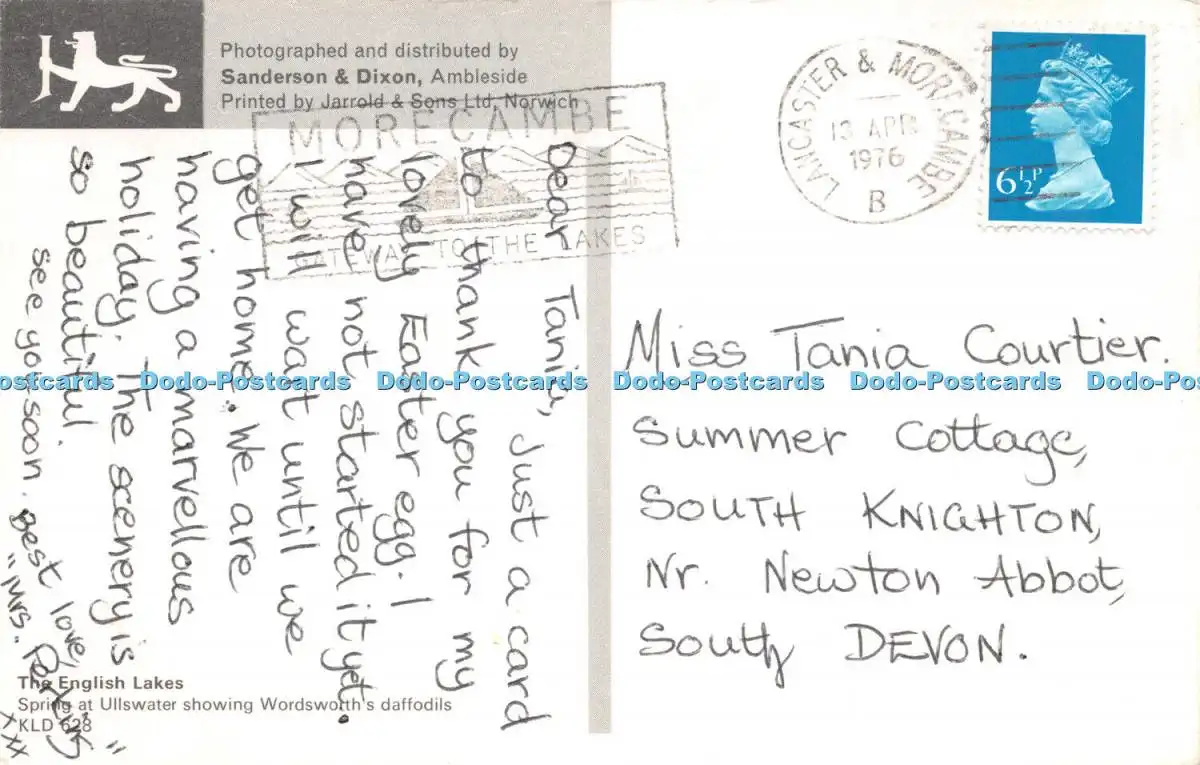 Photographed and distributed by
Sanderson & Dixon, Ambleside
Printed by Jarrold & Sons Ltd, Norwich
MORECAMBE
GATEWAY TO THE LAKES
LANCASTER & MORECAMBE
13 APR
1976
B
6½P
Dear Tania, Just a card
to thank you for my
lovely Easter egg. I
have not started it yet.
I will wat until we
get home. We are
having a marvellous
holiday. The scenery is
so beautiful.
see you soon. best love,
"Mrs.
xxx
Miss Tania Courtier.
Summer Cottage,
SOUTH KNIGHTON,
Nr. Newton Abbot,
South DEVON.
Dodo-Postcards Dodo-Postcards Dodo-Postcards Dodo-Postcards Dodo-Postcards
The English Lakes
Spring at Ullswater showing Wordsworth's daffodils
KLD 628